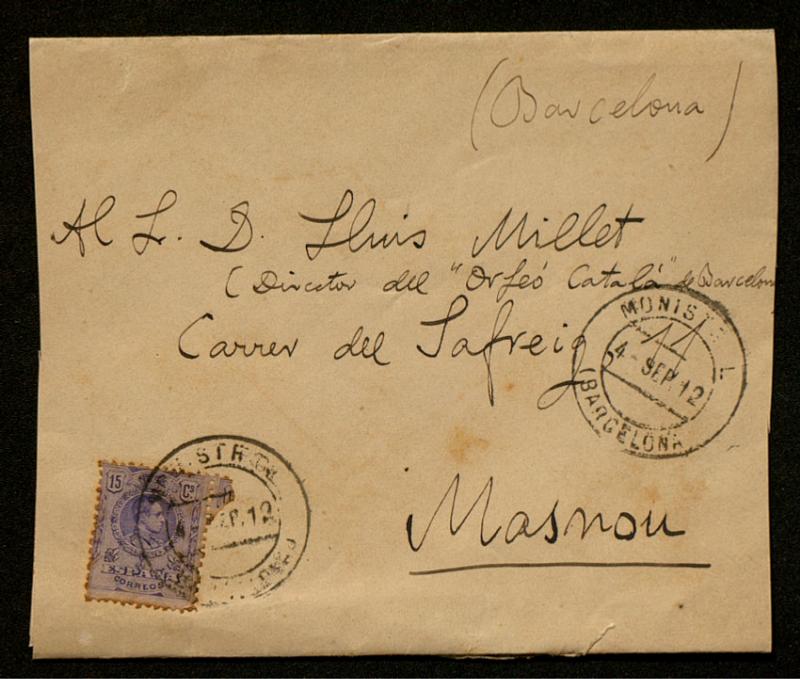 (Barcelona)
Al Sr. D. Lluis Millet
(Director del "Orfeó Catalá" de Barcelona
Carrer del Safreig, 11
MONIST L
4 - SEP. 12
(BARCELONA)
Masnou
15 Cs
CORREOS
STROL
SEP. 12